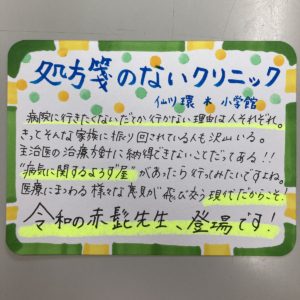 処方箋のないクリニック
仙川環 * 小学館
病院に行きたくないだとか行かない理由は人それぞれ。
きっとそんな家族に振り回されている人も沢山いる。
主治医の治療方針に納得できないことだってある!!
“病気に関するよろず屋”があったら行ってみたいですよね。
医療にまつわる様々な意見が飛び交う現代だからこそ!
令和の赤髭先生、登場です!